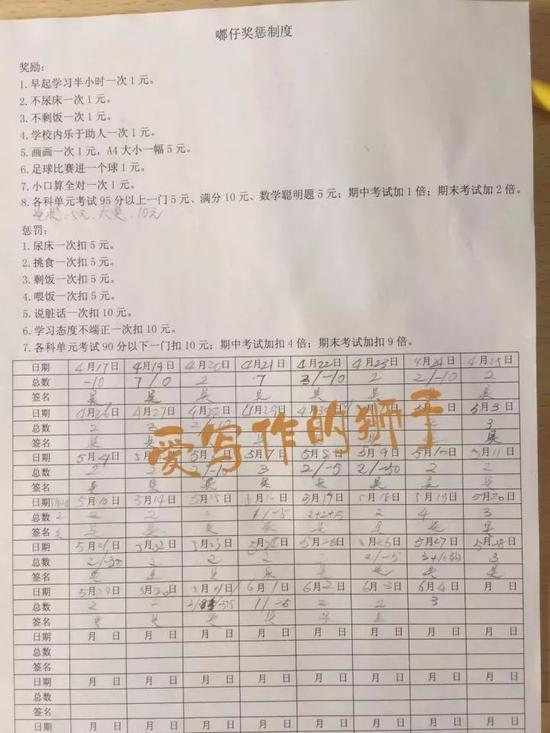 嘟仔奖惩制度
奖励:
1.早起学习半小时一次1元。
2.不尿床一次1元。
3.不剩饭一次1元。
4.学校内乐于助人一次1元。
5.画画一次1元，A4大小一幅5元。
6.足球比赛进一个球1元。
7.小口算全对一次1元。
8.各科单元考试95分以上一门5元、满分10元、数学聪明题5元；期中考试加1倍；期末考试加2倍。
5元、大 10元
惩罚:
1.尿床一次扣5元。
2.挑食一次扣5元。
3.剩饭一次扣5元。
4.喂饭一次扣5元。
5.说脏话一次扣10元。
6.学习态度不端正一次扣10元。
7.各科单元考试90分以下一门扣10元；期中考试加扣4倍；期末考试加扣9倍。
日期 4月17日 4月19日 4月20日 4月21日 4月22日 4月23日 4月24日 4月25日
总数 -10 7/0 2 7 3/-10 2 2/-10 2
签名
日期 4月26日 4月27日 4月28日 4月29日 5月3日
总数 2 2 2 3
签名
爱写作的狮子
日期 5月4日 5月7日 5月8日 5月9日 5月10日 5月11日
总数 2 3 2/-5 2/-30 2 2
签名
日期 5月13日 5月14日 5月15日 5月18日 5月19日 5月20日
总数 2 2 - 1/-5 2+2+5 2 4 3
签名
日期 5月21日 5月22日 5月23日 5月26日 5月27日 5月28日
总数 2/-30 2 2 2 - 2/-5 3
签名
日期 5月29日 5月30日 6月1日 6月2日 6月3日 6月4日 月 日
总数 2 - 1/-5 2 2 3
签名
日期 月 日 月 日 月 日 月 日 月 日 月 日 月 日 月 日
总数
签名
日期 月 日 月 日 月 日 月 日 月 日 月 日 月 日 月 日
总数
签名
日期 月 日 月 日 月 日 月 日 月 日 月 日 月 日 月 日